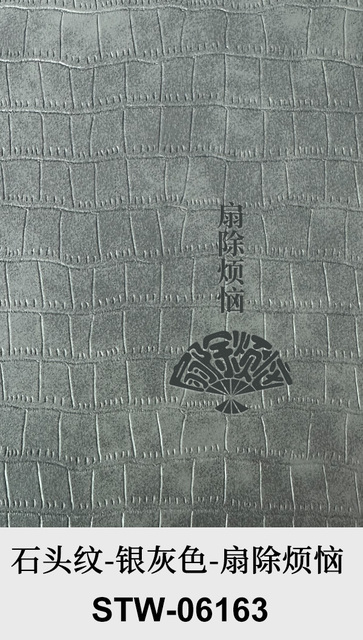 扇除烦恼
扇除烦恼
石头纹-银灰色-扇除烦恼
STW-06163